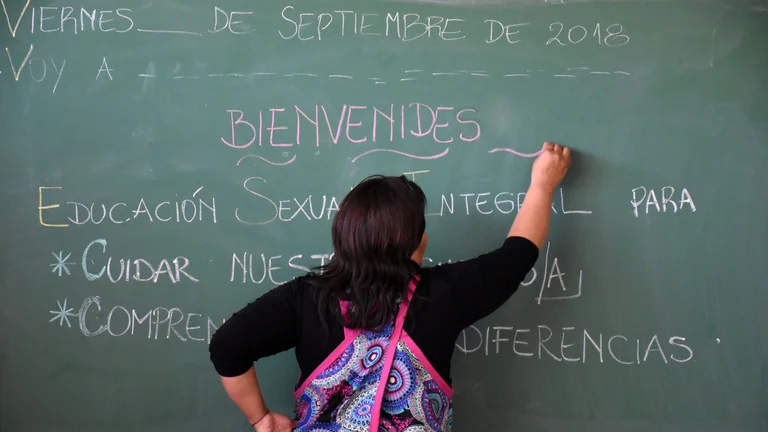 VIERNES___ DE SEPTIEMBRE DE 2018
VOY A _ _ _ _ _ _ _ _ _ _ _
BIENVENIDES
EDUCACIÓN SEXUAL INTEGRAL PARA
*CUIDAR
*DIFERENCIAS.